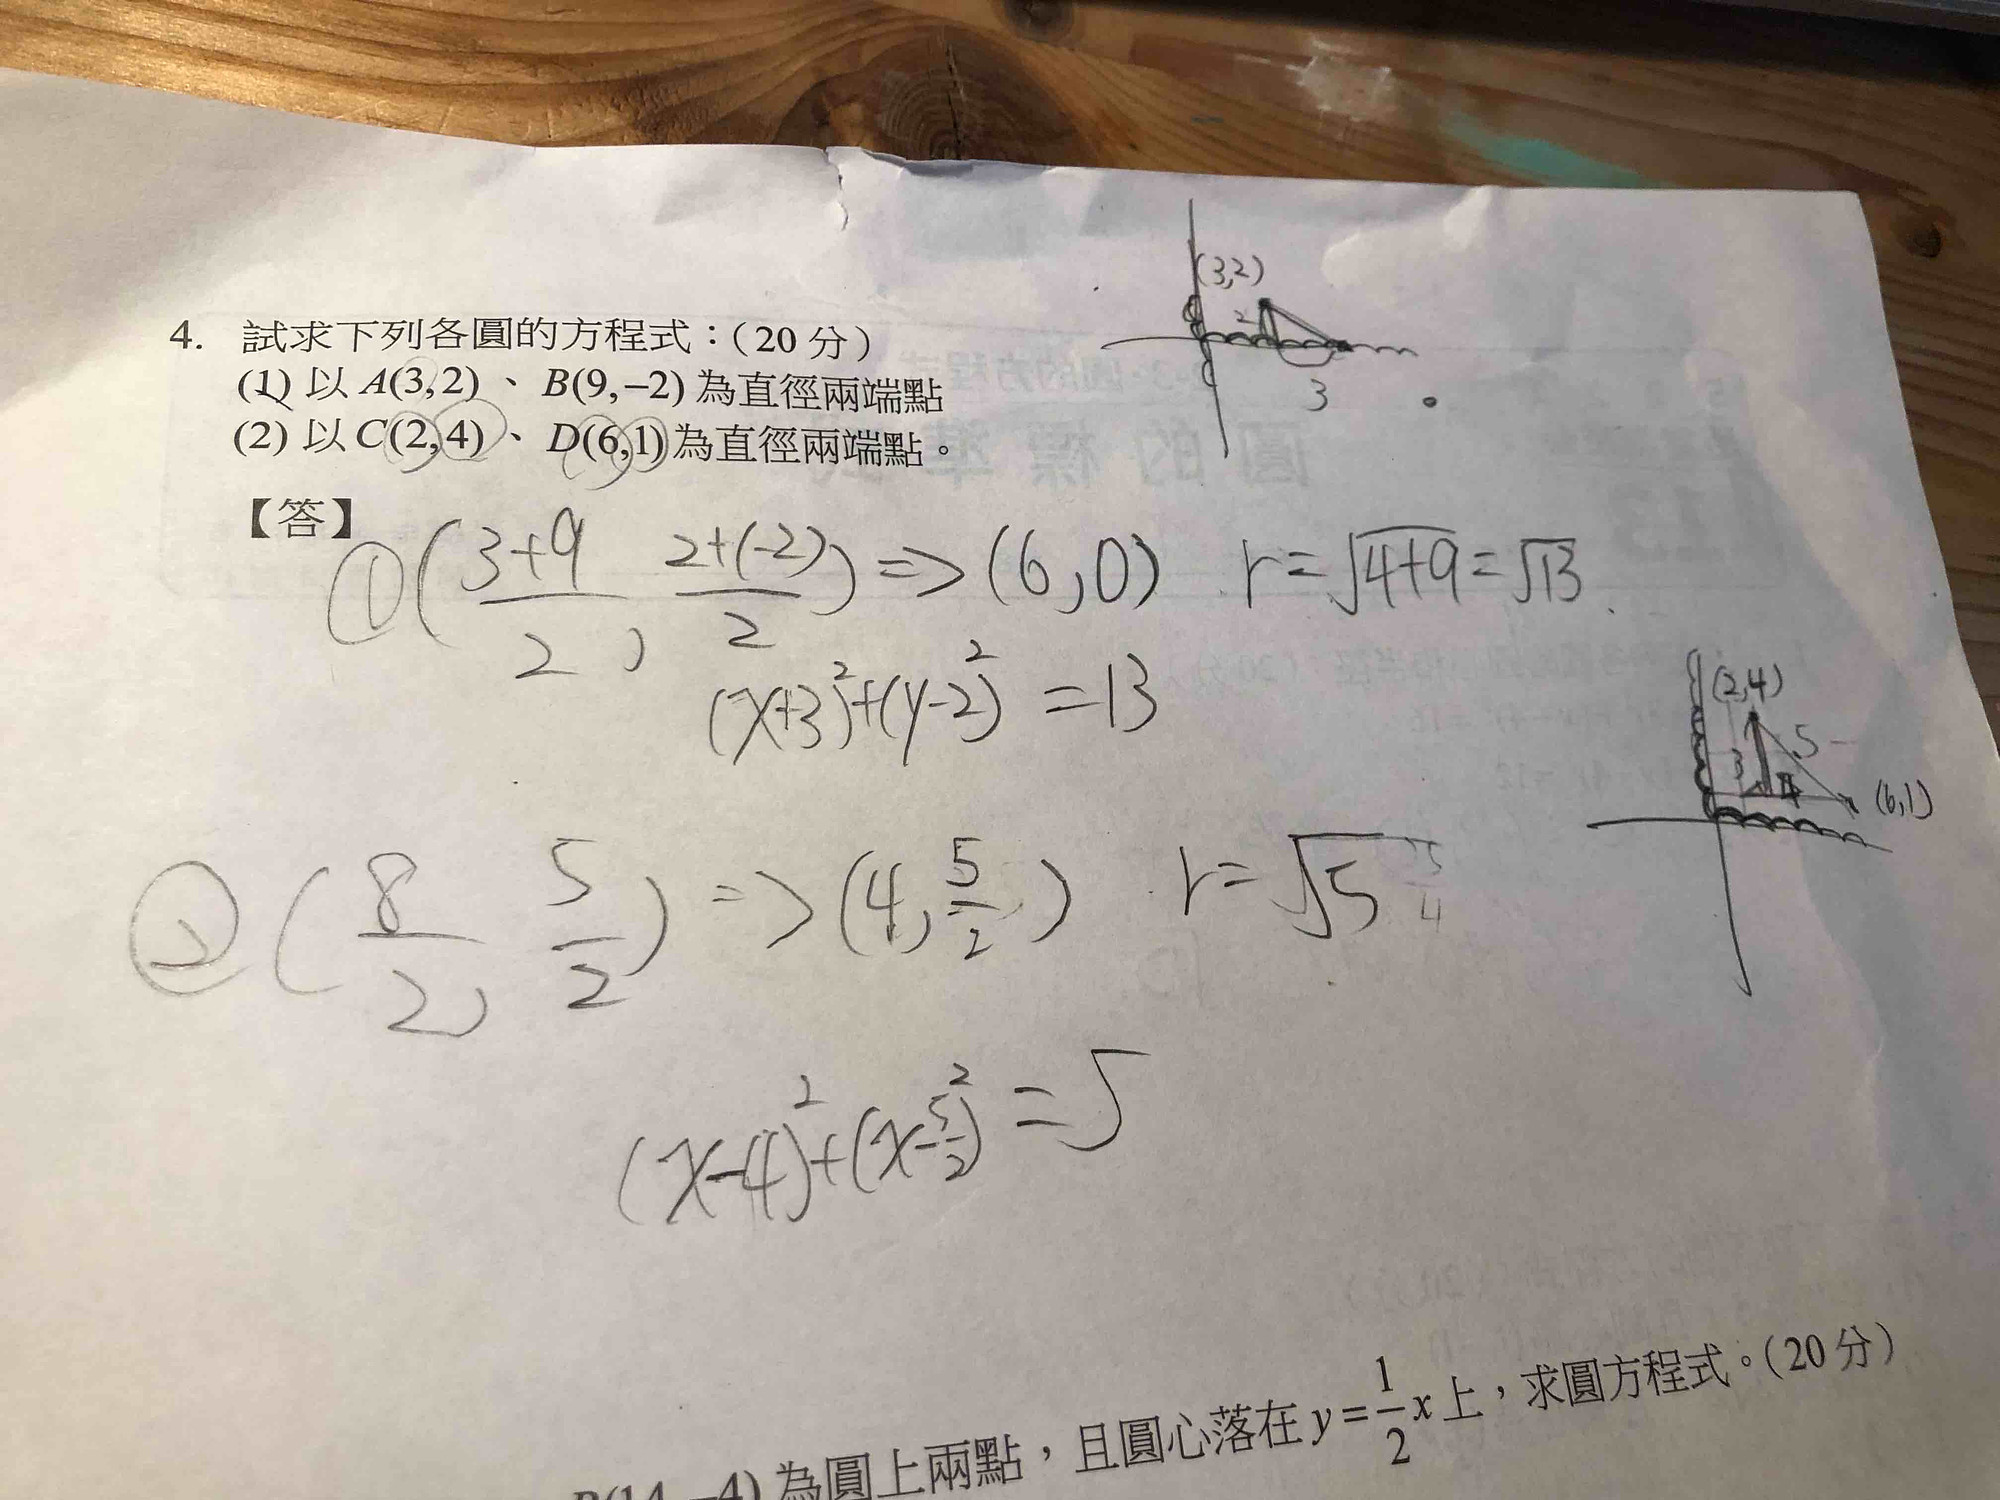 (3,2)
2
3
4. 試求下列各圓的方程式：(20 分)
(1) 以 A(3,2) 、 B(9,−2) 為直徑兩端點
(2) 以 C(2,4) 、 D(6,1) 為直徑兩端點。
【答】
① (3+9/2, 2+(-2)/2) => (6,0) r=√4+9=√13
(x+3)²+(y-2)²=13
(2,4)
5
3 4
(6,1)
② (8/2, 5/2) => (4, 5/2) r=√5
(x-4)²+(x-5/2)²=5
B(14,−4) 為圓上兩點，且圓心落在 y=1/2x 上，求圓方程式。(20 分)